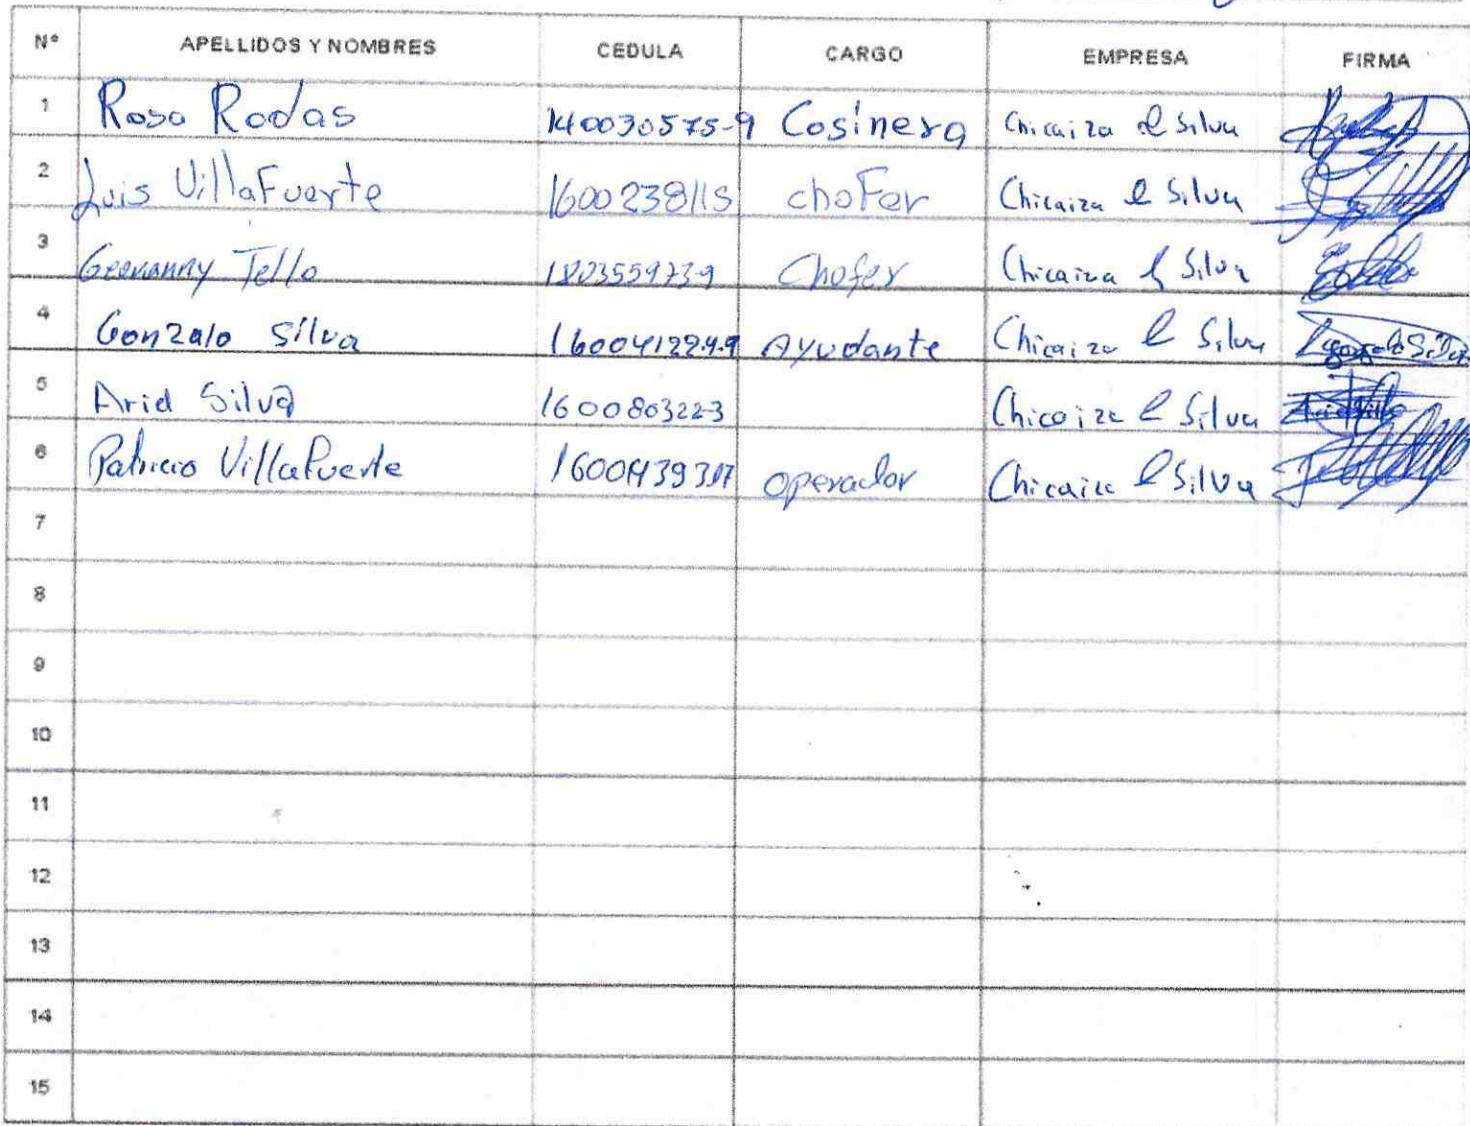 N° APELLIDOS Y NOMBRES CEDULA CARGO EMPRESA FIRMA
1 Rosa Rodas 140030575-9 Cosinera Chicaiza e Silva
2 Luis VillaFuerte 1600238115 choFer Chicaiza e Silva
3 Geovanny Tello 180355973-9 Chofer Chicaiza e Silva
4 Gonzalo Silva Ayudante Chicaiza e Silva
5 Arid Silva 160080322-3 Chicaiza e Silva
6 Patricio Villafuerte operador Chicaiza e Silva
7
8
9
10
11
12
13
14
15